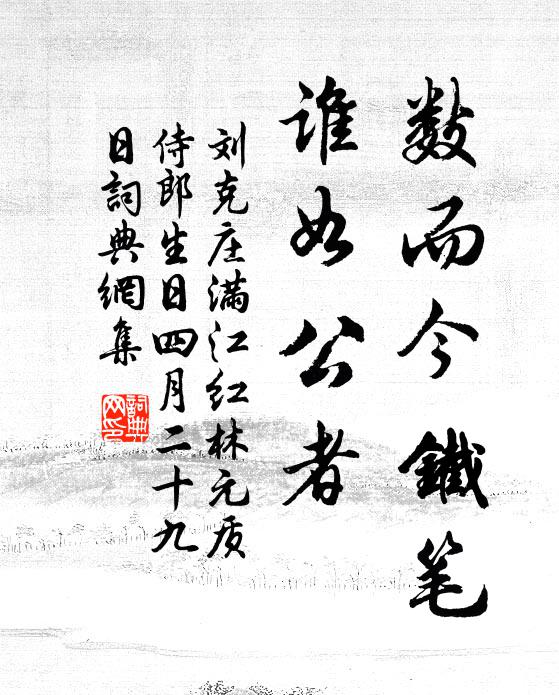 数而今鐵笔
谁如公者
刘克庄满江红林元质
侍郎生日四月二十九
日詞典網集
詞典
网印